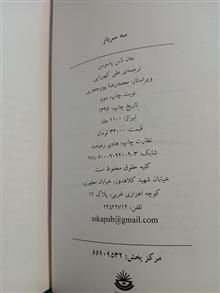 سه سرباز
جان دُس پاسوس
ترجمه‌ی علی کهربایی
ویراستار: محمدرضا پورجعفری
نوبت چاپ: دوم
تاریخ چاپ: ۱۳۹۶
تیراژ: ۱۱۰۰ جلد
قیمت: ۳۴۰۰۰ تومان
نظارت چاپ: هادی رضامند
شابک: ۳-۰۹-۷۰۹۲-۶۰۰-۹۷۸
کلیه حقوق محفوظ است.
خیابان شهید کلاهدوز، خیابان مطهری،
کوچه اهرازی غربی، پلاک ۱۲
تلفن: ۲۲۵۴۹۷۱۲
nikapub@gmail.com
مرکز پخش: ۶۶۹۰۴۵۳۲